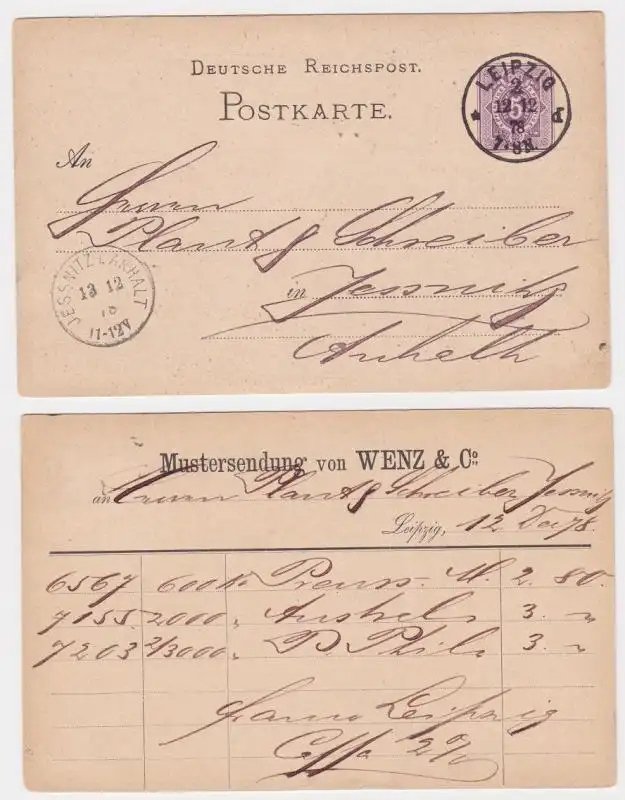 DEUTSCHE REICHSPOST.
POSTKARTE.
LEIPZIG
2
12 12
78
7-8N.
* P
5
An
Herren
Plant & Schreiber
in Jessnitz
Anhalt
JESSNITZ I. ANHALT
13 12
78
11-12V
Mustersendung von WENZ & Co.
an Herren Plant & Schreiber, Jessnitz
Leipzig, 12 Dec 78.
6567 600 K Preuss. M. 2. 80.
7155 2000 " Austral. 3. "
7203 2/3000 " P. Phil. 3. "
franco Leipzig
Cassa 2%